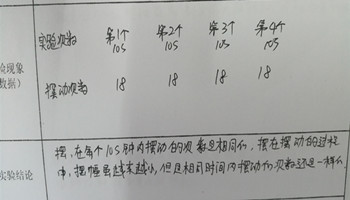 实验次数 第1个10S 第2个10S 第3个10S 第4个10S
验现象
数据)
摆动次数 18 18 18 18
实验结论
摆，在每个10S钟内摆动的次数是相同的，摆在摆动的过程
中，摆幅虽越来越小，但是相同时间内摆动的次数还是一样的